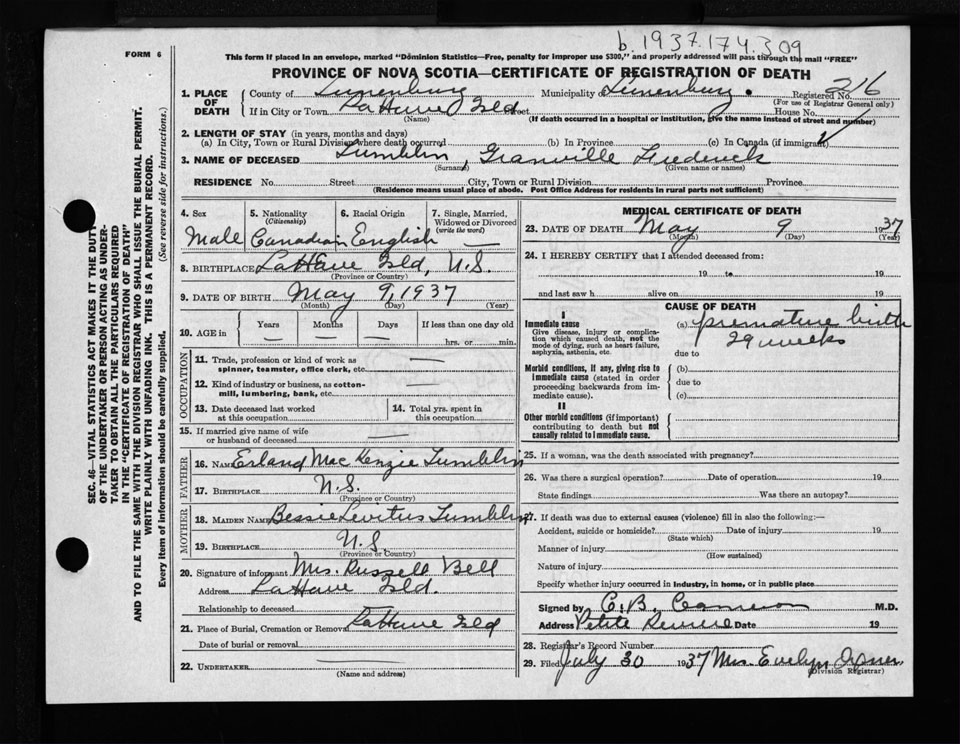 b. 1937.174.309
FORM 6
This form if placed in an envelope, marked "Dominion Statistics—Free, penalty for improper use $300," and properly addressed will pass through the mail "FREE"
PROVINCE OF NOVA SCOTIA—CERTIFICATE OF REGISTRATION OF DEATH
1. PLACE OF DEATH
County of Lunenburg Municipality of Lunenburg. Registered No. 216
(For use of Registrar General only)
If in City or Town LaHave Isld Street House No.
(Name) (If death occurred in a hospital or institution, give the name instead of street and number)
2. LENGTH OF STAY (in years, months and days)
(a) In City, Town or Rural Division where death occurred (b) In Province (c) In Canada (if immigrant)
3. NAME OF DECEASED Tumblin, Granville Frederick
(Surname) (Given name or names)
RESIDENCE No. Street City, Town or Rural Division Province
(Residence means usual place of abode. Post Office Address for residents in rural parts not sufficient)
4. Sex
Male
5. Nationality (Citizenship)
Canadian
6. Racial Origin
English
7. Single, Married, Widowed or Divorced (write the word)
—
8. BIRTHPLACE LaHave Isld, N.S.
(Province or Country)
9. DATE OF BIRTH May 9, 1937
(Month) (Day) (Year)
10. AGE in
Years Months Days If less than one day old
— — — hrs. or min.
OCCUPATION
11. Trade, profession or kind of work as spinner, teamster, office clerk, etc. —
12. Kind of industry or business, as cotton-mill, lumbering, bank, etc. —
13. Date deceased last worked at this occupation
14. Total yrs. spent in this occupation
15. If married give name of wife or husband of deceased —
FATHER
16. NAME Erland MacKenzie Tumblin
17. BIRTHPLACE N.S.
(Province or Country)
MOTHER
18. MAIDEN NAME Bessie Levitus Tumblin
19. BIRTHPLACE N.S
(Province or Country)
20. Signature of informant Mrs. Russell Bell
Address LaHave Isld.
Relationship to deceased —
21. Place of Burial, Cremation or Removal LaHave Isld
Date of burial or removal
22. UNDERTAKER —
(Name and address)
MEDICAL CERTIFICATE OF DEATH
23. DATE OF DEATH May 9 1937
(Month) (Day) (Year)
24. I HEREBY CERTIFY that I attended deceased from:
19 to 19
and last saw h alive on 19
CAUSE OF DEATH
I
Immediate cause
Give disease, injury or complication which caused death, not the mode of dying, such as heart failure, asphyxia, asthenia, etc.
(a) premature birth
29 weeks
due to
Morbid conditions, if any, giving rise to immediate cause (stated in order proceeding backwards from immediate cause).
(b)
due to
(c)
II
Other morbid conditions (if important) contributing to death but not causally related to immediate cause.
25. If a woman, was the death associated with pregnancy?
26. Was there a surgical operation? Date of operation 19
State findings Was there an autopsy?
27. If death was due to external causes (violence) fill in also the following:—
Accident, suicide or homicide? Date of injury 19
(State which)
Manner of injury
(How sustained)
Nature of injury
Specify whether injury occurred in industry, in home, or in public place
Signed by C.B. Cameron M.D.
Address Petite Riviere Date 19
28. Registrar's Record Number
29. Filed July 30 1937 Mrs. Evelyn
(Division Registrar)
SEC. 46—VITAL STATISTICS ACT MAKES IT THE DUTY
OF THE UNDERTAKER OR PERSON ACTING AS UNDER-
TAKER TO OBTAIN ALL THE PARTICULARS REQUIRED
IN THE "CERTIFICATE OF REGISTRATION OF DEATH"
AND TO FILE THE SAME WITH THE DIVISION REGISTRAR WHO SHALL ISSUE THE BURIAL PERMIT.
WRITE PLAINLY WITH UNFADING INK. THIS IS A PERMANENT RECORD.
Every item of information should be carefully supplied. (See reverse side for instructions.)